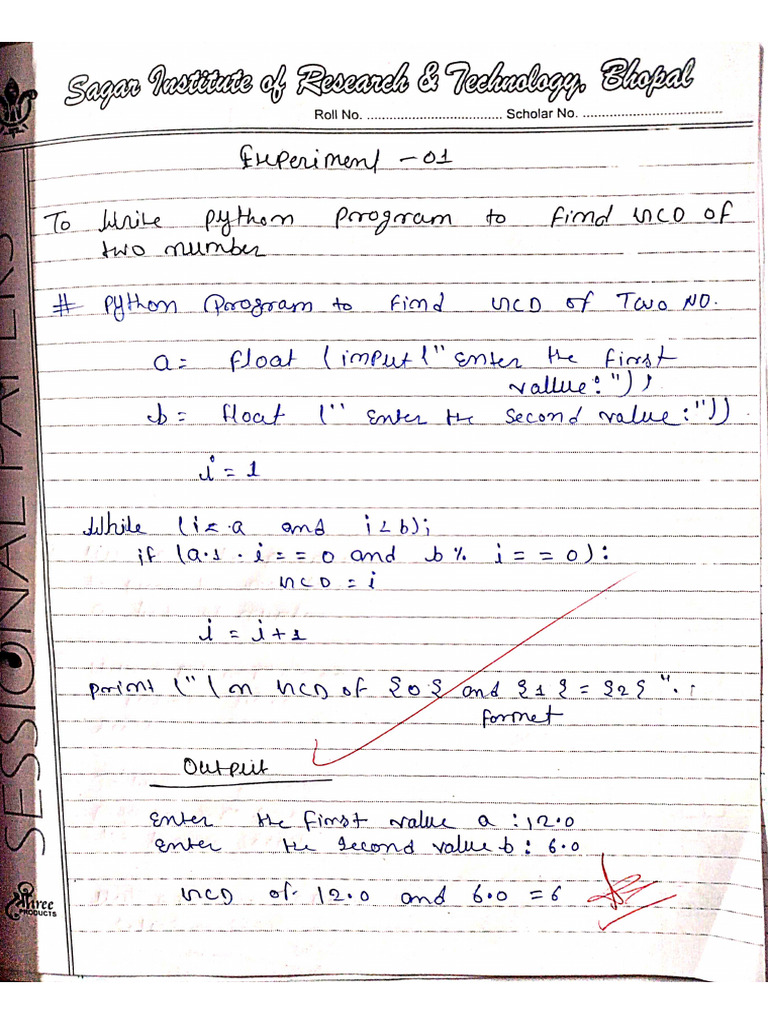 Sagar Institute of Research & Technology, Bhopal
Roll No. .................................. Scholar No. ...................................
Experiment - 01
To Write python program to find GCD of
two number
# python program to find GCD of Two NO.
a = float (input (" Enter the first
vallue:"));
b = float (" Enter the Second value:"))
i = 1
While (i <= a and i < b);
if (a.1. i == 0 and b % i == 0):
GCD = i
i = i + 1
print ("\n GCD of {0} and {1} = {2} ".
format
Output
Enter the first value a : 12.0
Enter the second value b : 6.0
GCD of 12.0 and 6.0 = 6
SESSIONAL PAPERS
Shree
PRODUCTS